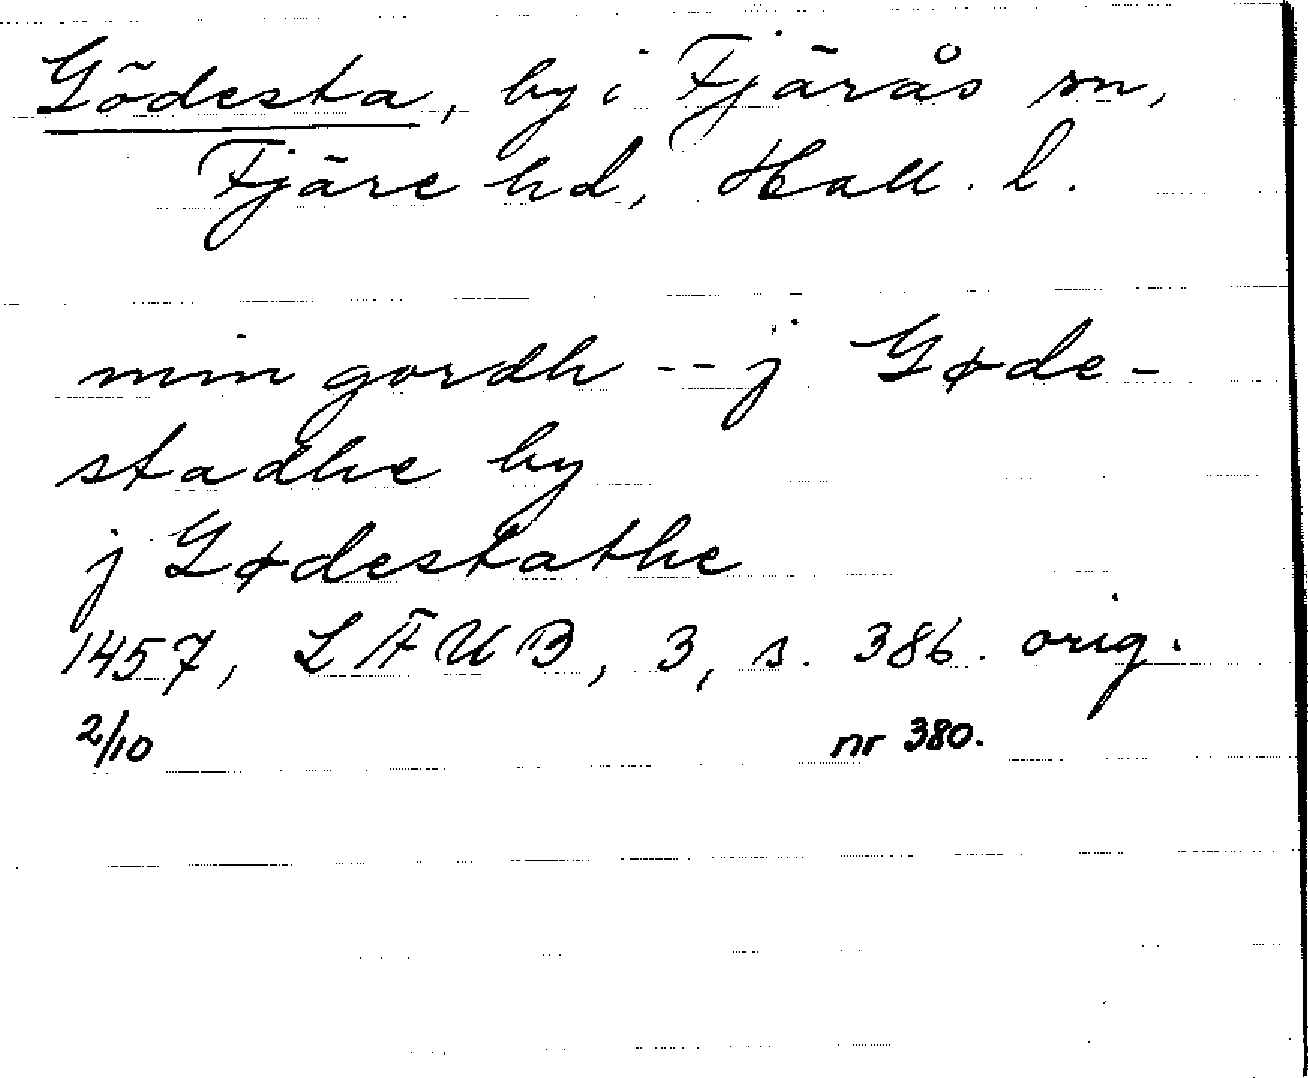 Gödesta, by i Fjärås sn,
Fjäre hd, Hall. l.
min gordh -- j Gøde-
stadhe by
j Gødestathe
1457, LÄUB, 3, s. 386. orig.
2/10 nr 380.